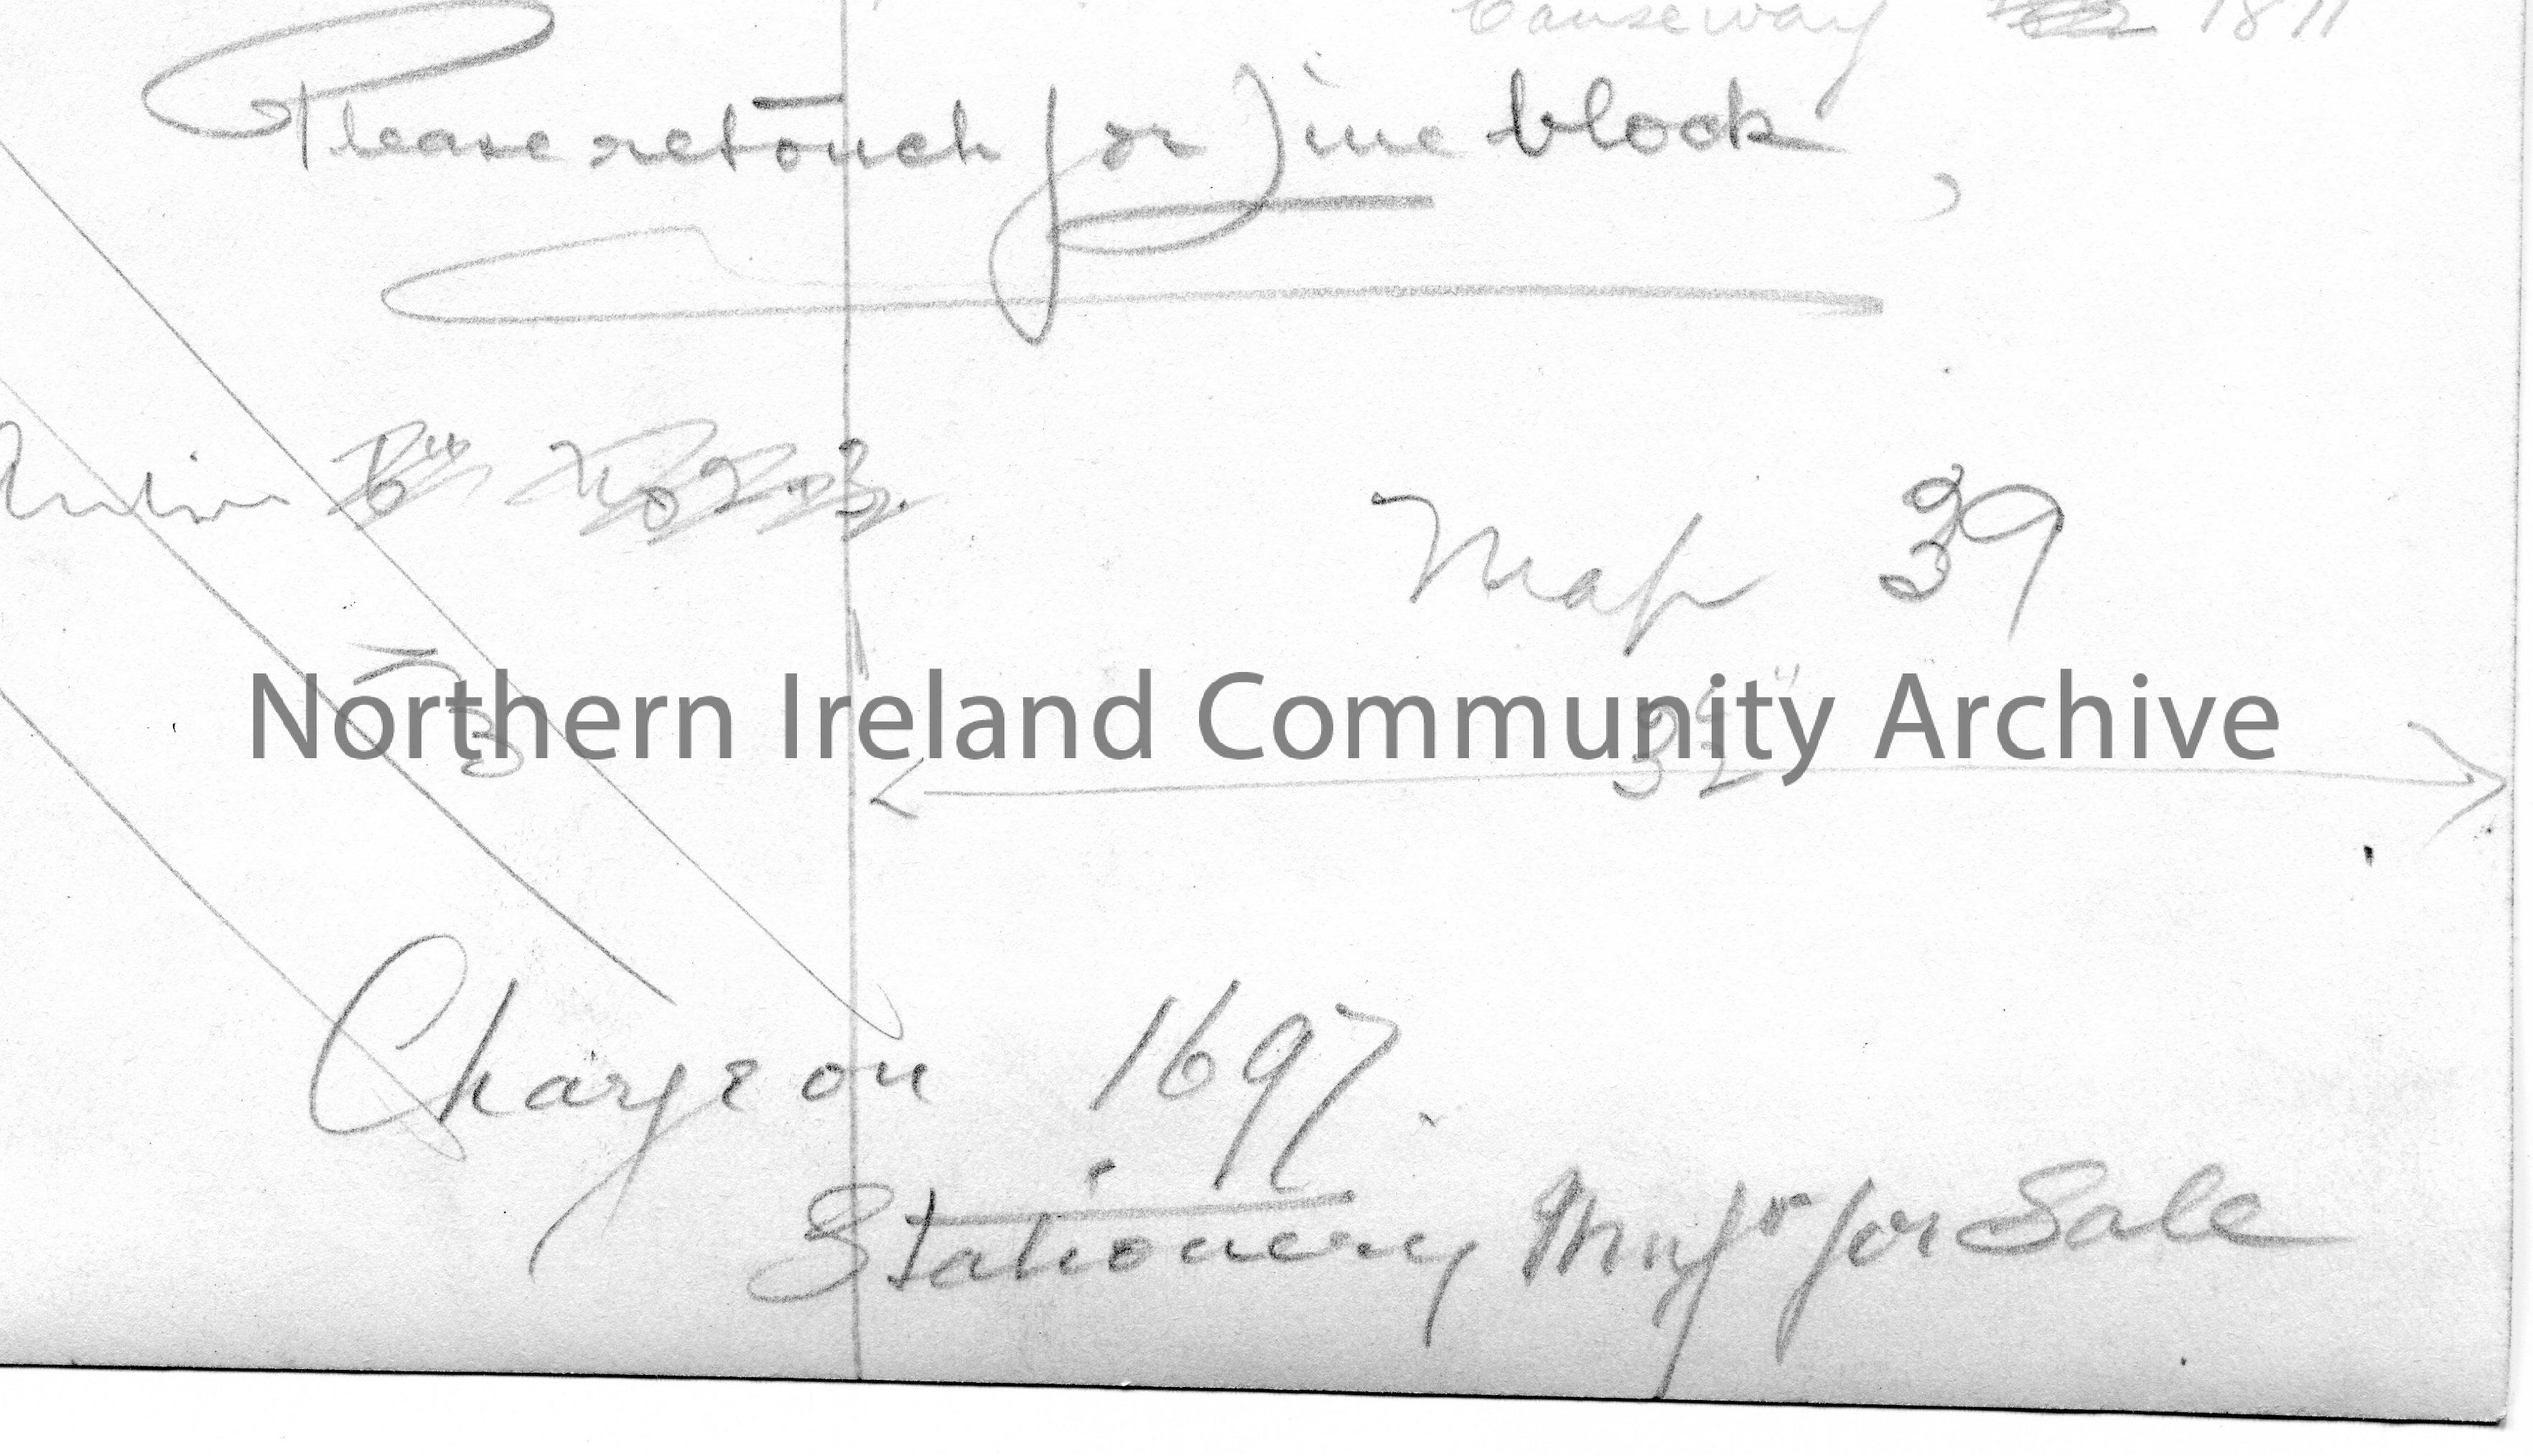 Causeway 1811
Please retouch for Line block
Map 39
Northern Ireland Community Archive
3
Charge on 1697.
Stationery Mnfr for Sale